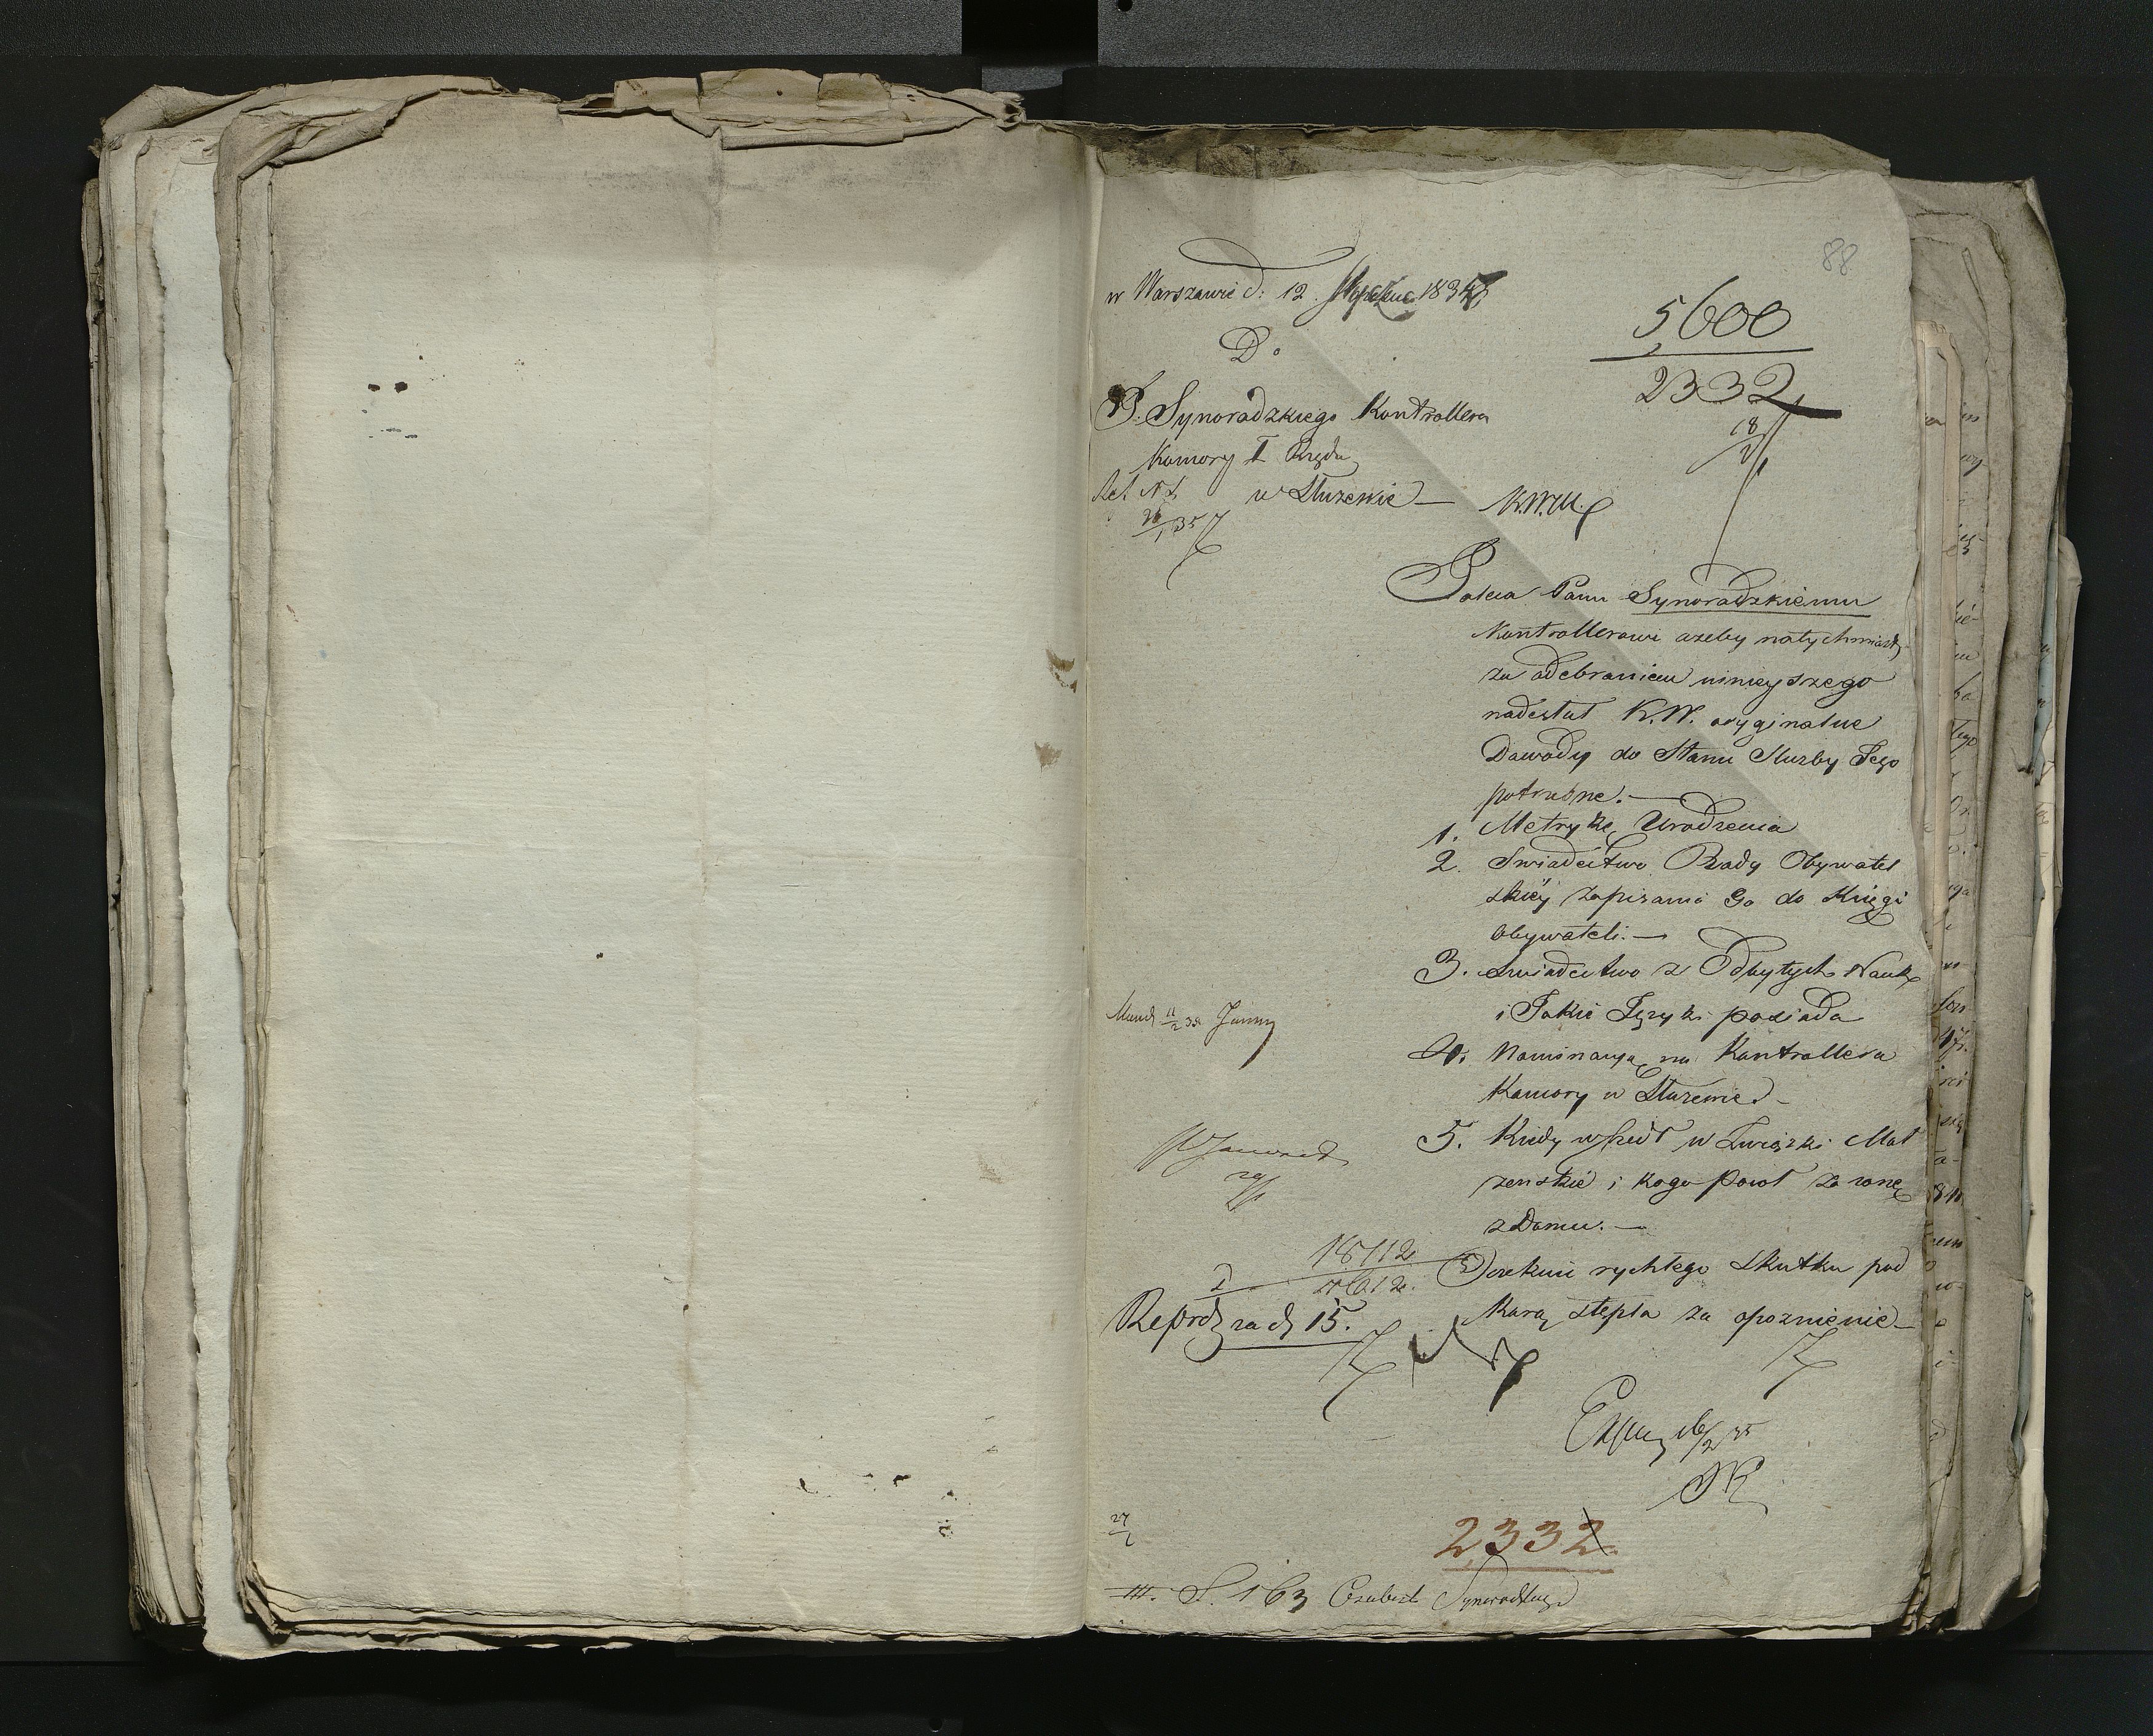 88
w Warszawie d: 12. Stycznia 1835
5600
2332
18/2
Do
P. Synoradzkiego Kontrollera
Komory I Rzędu
w Słuzewie — K.W.M.
26/1 35
Poleca Panu Synoradzkiemu
Kontrollerowi azeby natychmiast
za odebraniem ninieyszego
nadesłał K.W. oryginalne
Dowody do Stanu Służby Jego
potrzebne.—
1. Metrykę Urodzenia
2. Swiadectwo Rady Obywatel
skiéy zapisania Go do Księgi
Obywateli.—
3. Swiadectwo z Odbytych Nauk
i Jakie Języki posiada
4. Nominacyą na Kontrollera
Komory w Słuzewie.—
5. Kiedy wszedł w Związki Mał
zenskie i kogo poiął za zonę
z Domu.—
Oczekuie rychłego skutku pod
Karą stępla za opoznienie—
Mund 11/2 35
29/1
18112
27612
Reprod za d 15.
Exp 16/2 35
27/1
2332
III. S. 163 Osobiste Synoradzkiego